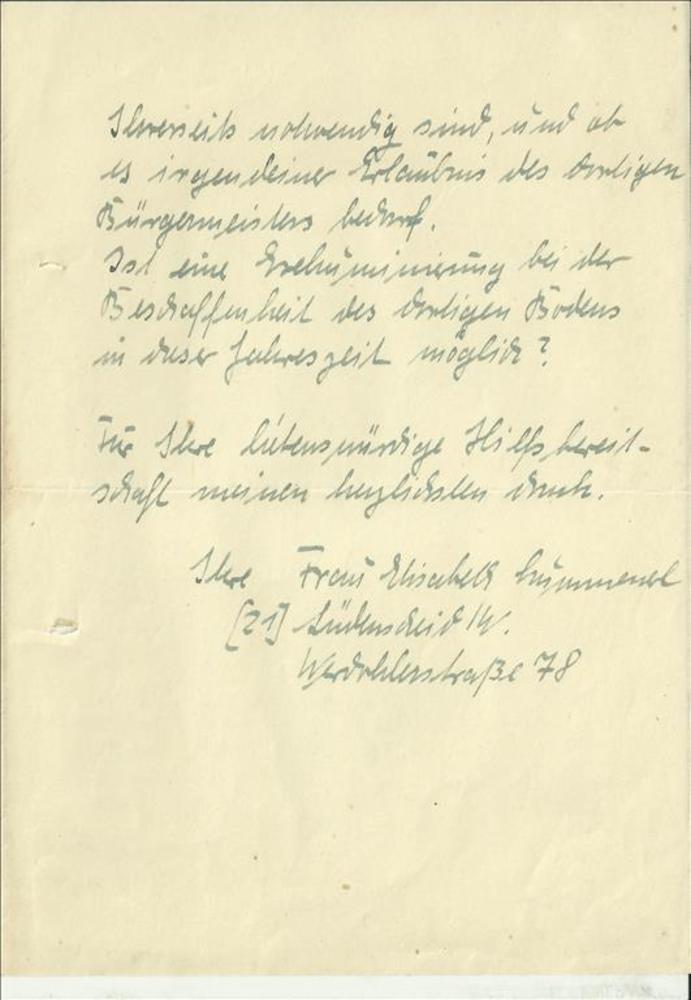 Ihrerseits notwendig sind, und ob
es irgendeiner Erlaubnis des dortigen
Bürgermeisters bedarf.
Ist eine Exhuminierung bei der
Beschaffenheit des dortigen Bodens
in dieser Jahreszeit möglich?
Für Ihre liebenswürdige Hilfsbereit-
schaft meinen herzlichsten Dank.
Ihre Frau Elisabeth
(21) Lüdenscheid /W.
Werdohlerstraße 78